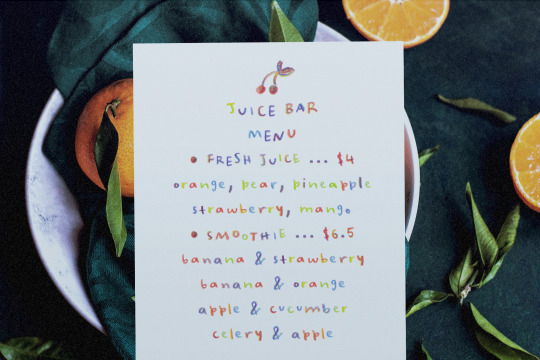 JUICE BAR
MENU
• FRESH JUICE ... $4
orange, pear, pineapple
strawberry, mango
• SMOOTHIE ... $6.5
banana & strawberry
banana & orange
apple & cucumber
celery & apple